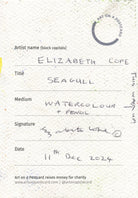 ART ON A POSTCARD
Artist name (block capitals)
ELIZABETH COPE
Title
SEAGULL
Medium
WATERCOLOUR
+ PENCIL
Signature
Date
11th Dec 2024
Art on a Postcard raises money for charity